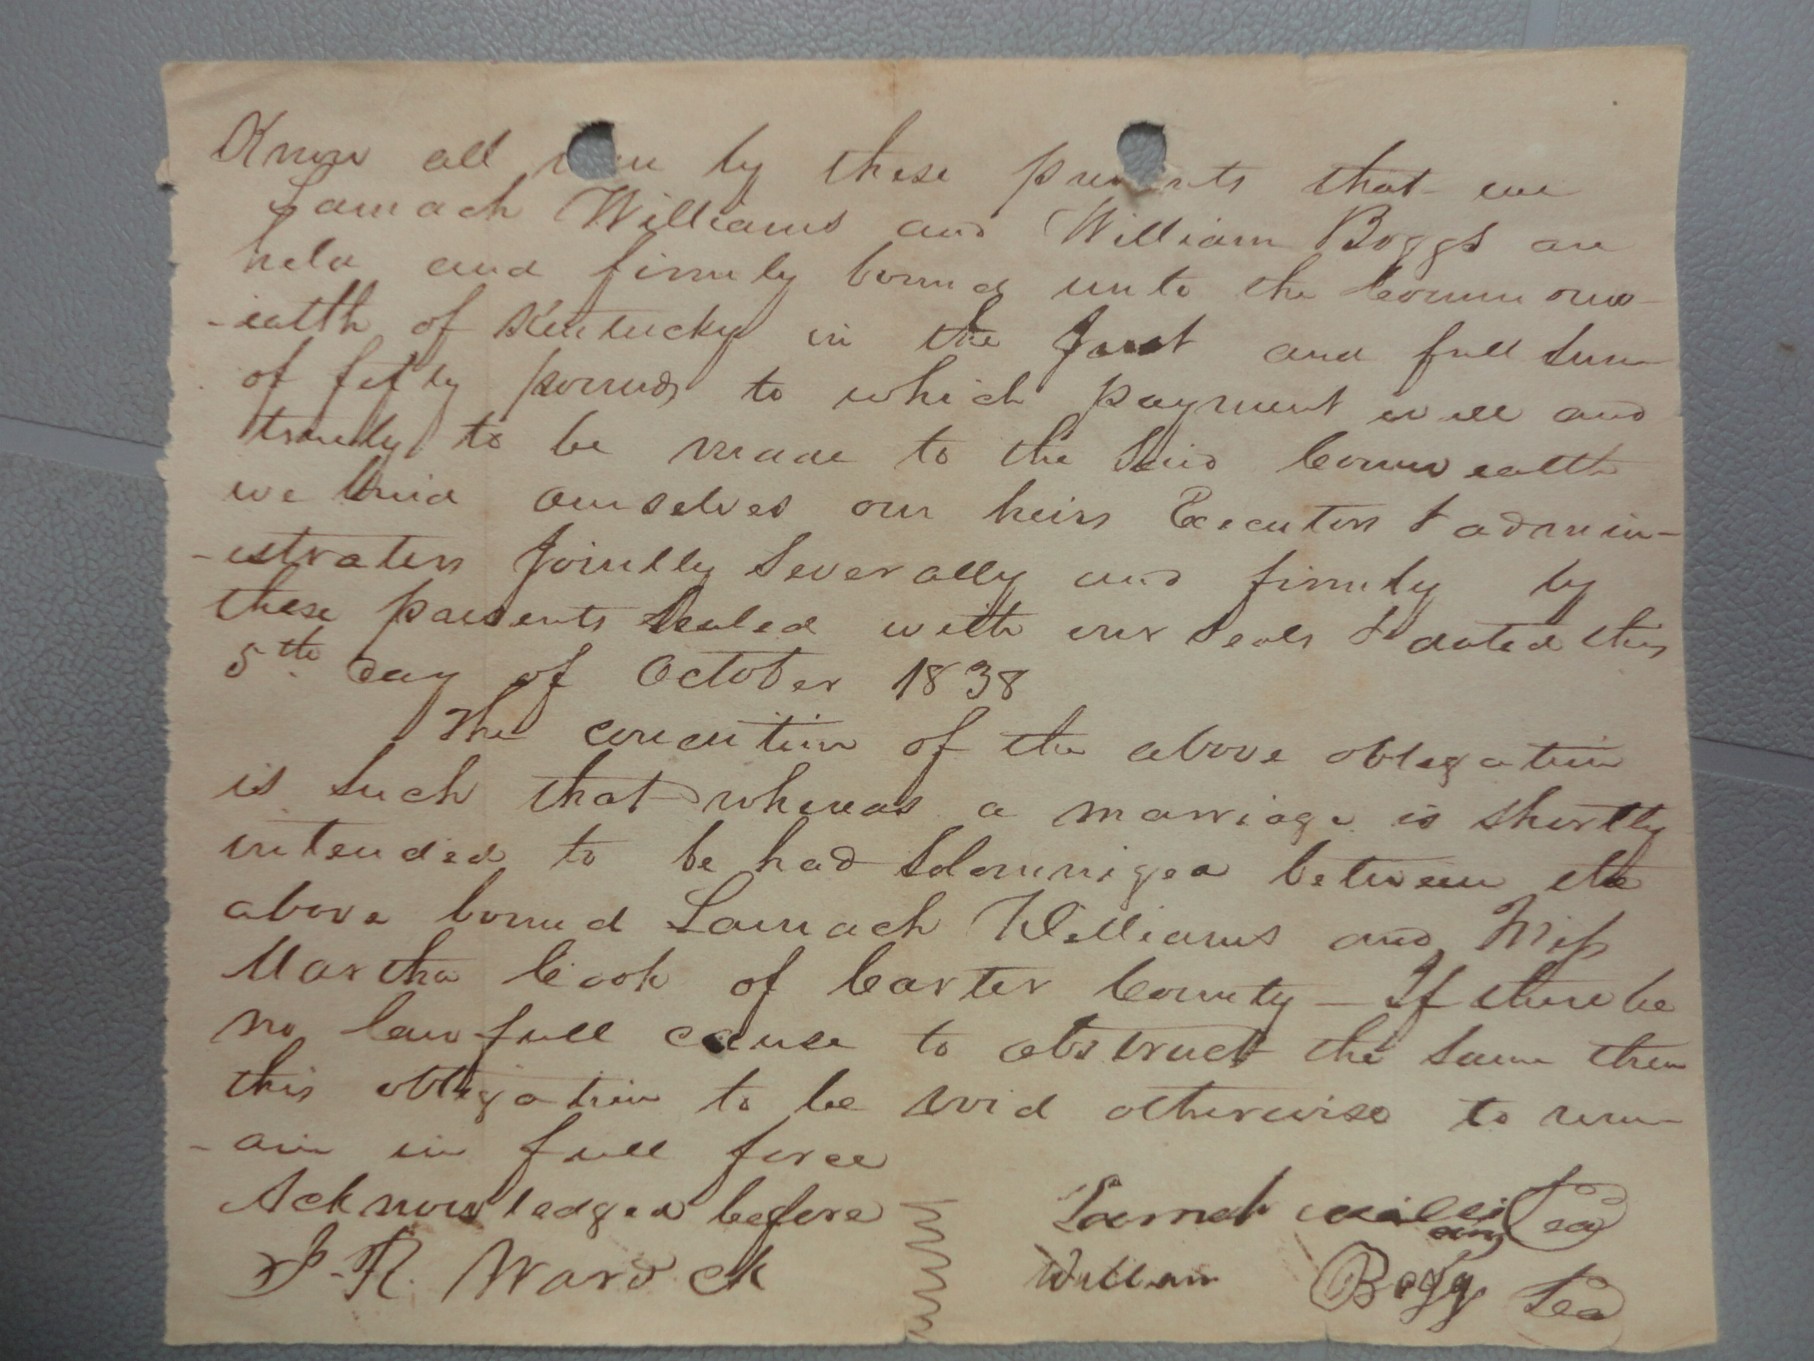 Know all men by these presents that we
Lamach Williams and William Boggs are
held and firmly bound unto the Commonw-
-ealth of Kentucky in the Just and full Sum
of fifty pounds to which payment well and
truely to be made to the Said Commwealth
we bind ourselves our heirs Executors & admin-
-istrators Jointly Severally and firmly by
these presents Sealed with our Seals & dated this
5th day of October 1838
The condition of the above obligation
is Such that whereas a marriage is Shortly
intended to be had Solomnized between the
above bound Lamach Williams and Miss
Martha Cook of Carter County - If there be
no lawfull cause to obstruct the Same then
this obligation to be void otherwise to rem-
-ain in full force
Acknowledged before
J. R. Ward ck
Lamach williams Sea
William Bogg Sea